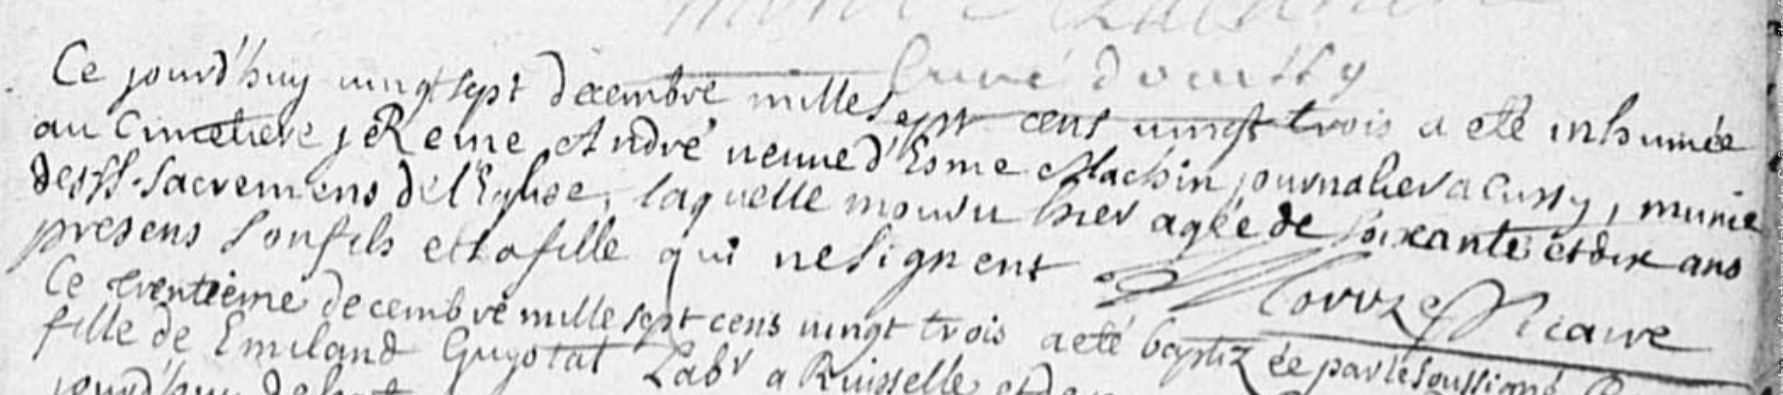 Curé ducussy
Ce jourd'huy vingt sept decembre mille sept cens vingt trois a eté inhumée
au Cimetiere Reine André veuve d'Esme Machin journalier a Cussy, munie
des SS. Sacremens de l'Eglise, laquelle mourut hier agée de soixante et dix ans
presens son fils et sa fille qui ne signent Vicaire
Ce trentieme decembre mille sept cens vingt trois a eté baptizée par le soussigné
fille de Emiland Guyotat Lab^r a Ruisselle et de
jourd'huy